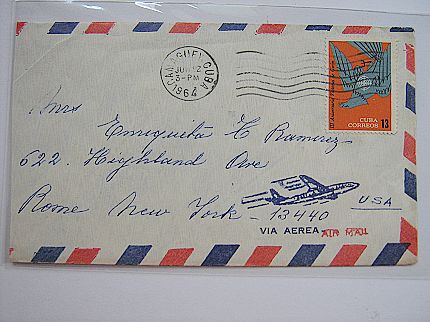 CAMAGUEY, CUBA
JUN 12
3-PM
1964
CUBA
CORREOS 13
Mrs
Enriqueta C Ramirez
622. Highland Ave
Rome New York - 13440
USA
VIA AEREA AIR MAIL